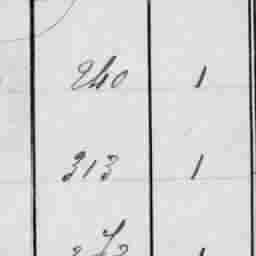 240 1
313 1